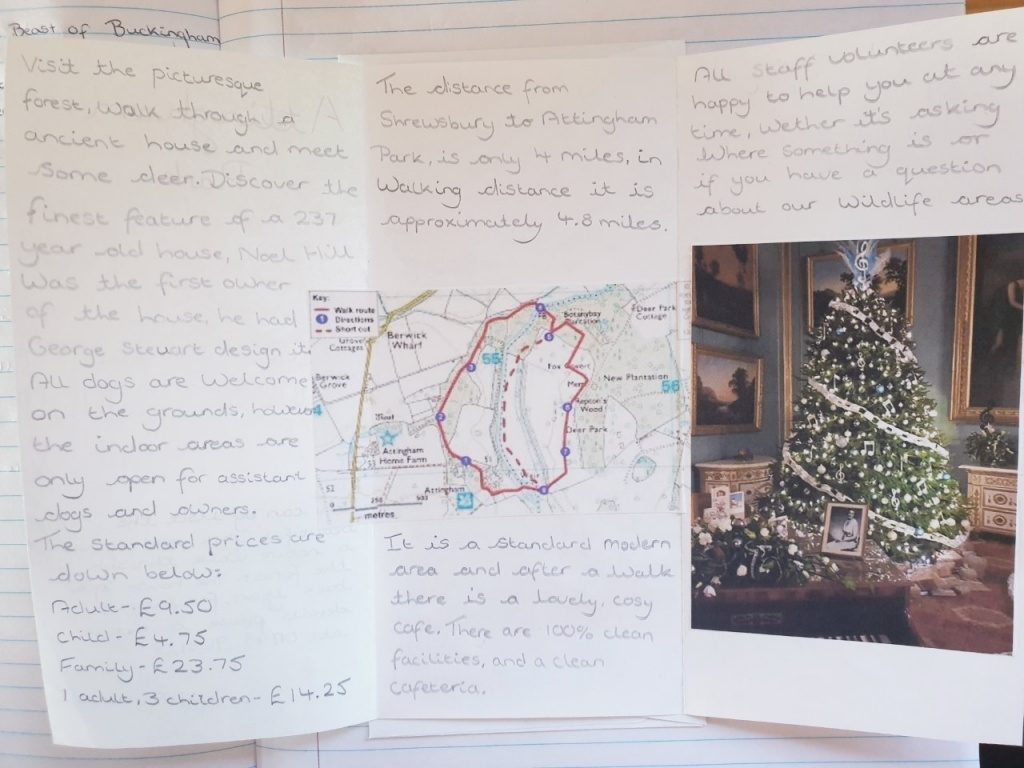 Beast of Buckingham
Visit the picturesque
forest, Walk through a
ancient house and meet
some deer. Discover the
finest feature of a 237
year old house, Noel Hill
Was the first owner
of the house, he had
George Steuart design it.
All dogs are Welcome
on the grounds, however
the indoor areas are
only open for assistant
dogs and owners.
The standard prices are
down below:
Adult- £9.50
Child- £4.75
Family- £23.75
1 adult, 3 children- £14.25
The distance from
Shrewsbury to Attingham
Park, is only 4 miles, in
Walking distance it is
approximately 4.8 miles.
Key:
Walk route
Directions
Short cut
Grove
Cottages
Berwick
Wharf
Berwick
Grove
Attingham
Home Farm
Attingham
55
56
Botanybay
Deer Park
Cottage
New Plantation
Repton's
Wood
Deer Park
52
53
51
0 250 500
metres
It is a standard modern
area and after a walk
there is a lovely, cosy
cafe. There are 100% clean
facilities, and a clean
cafeteria.
All staff volunteers are
happy to help you at any
time, wether it's asking
Where something is or
if you have a question
about our wildlife areas